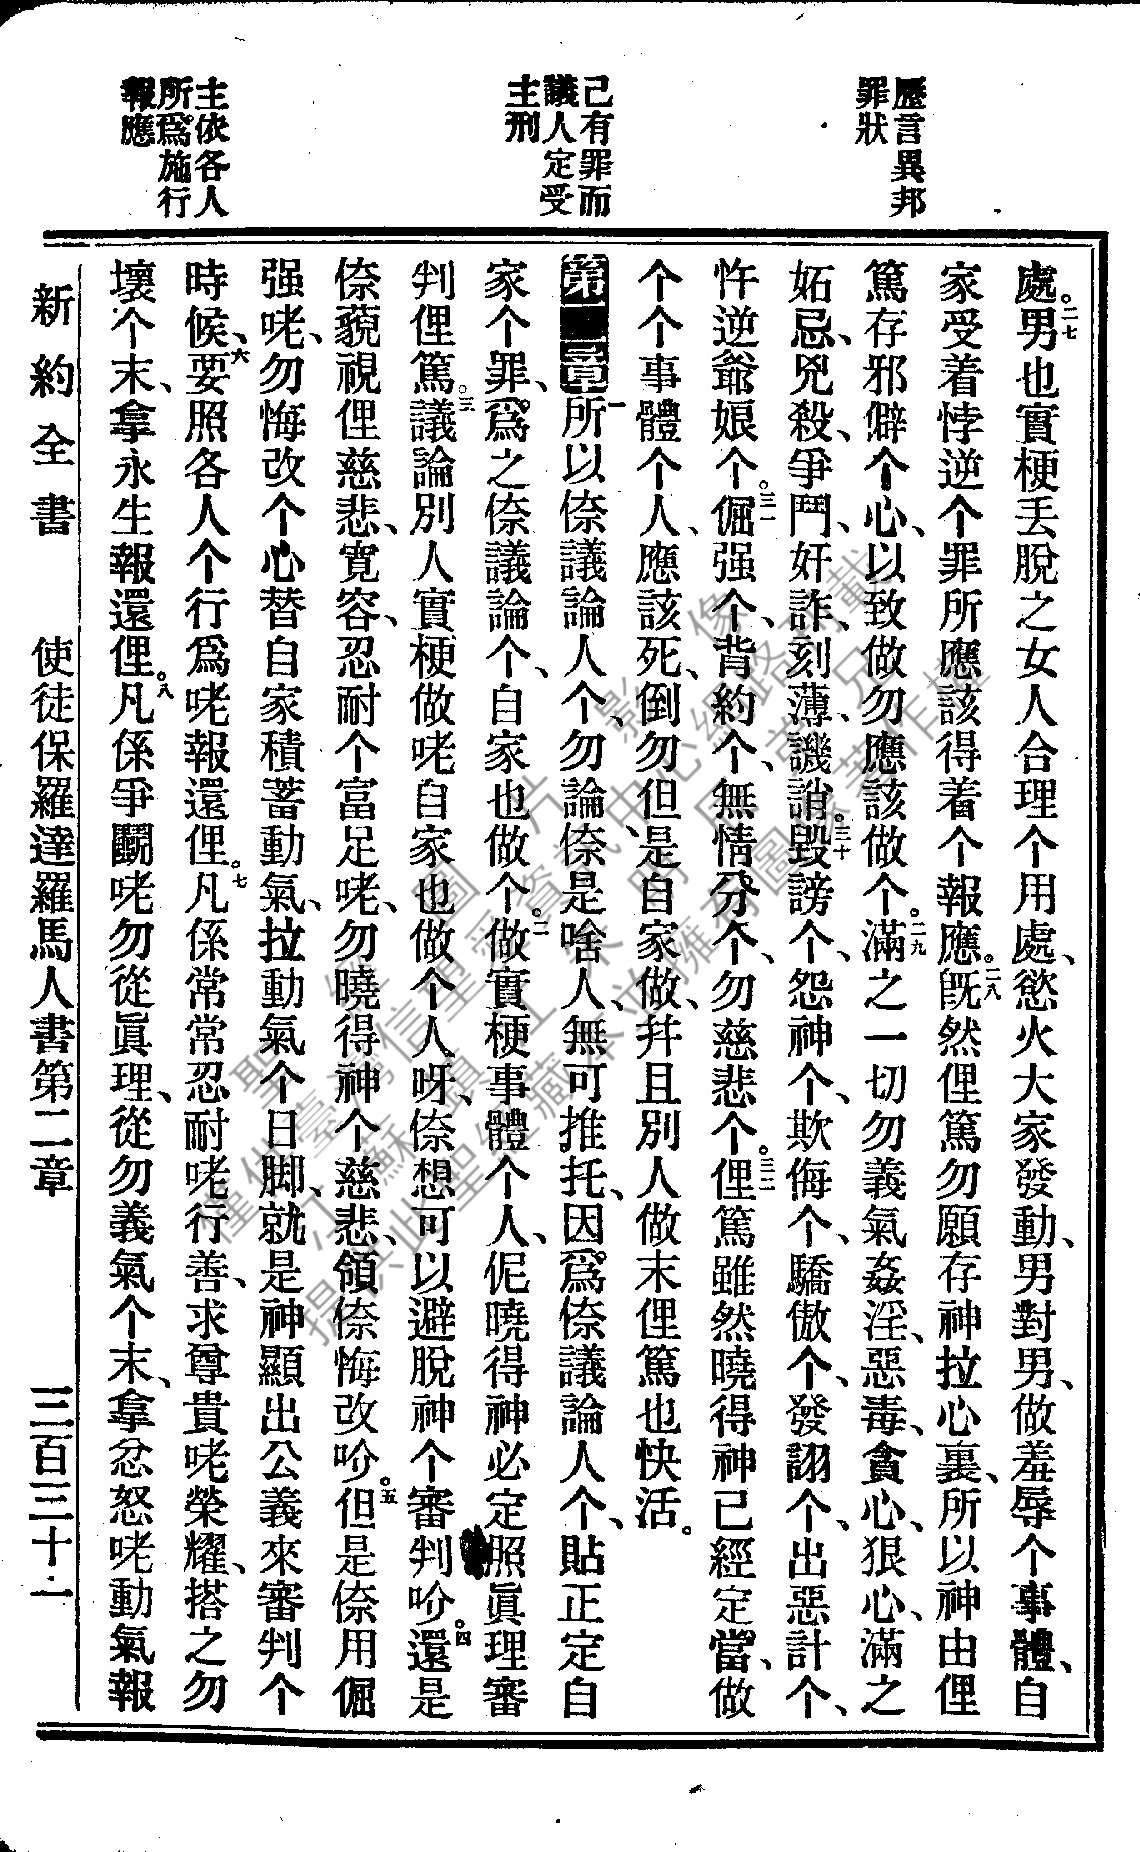 歷言異邦
罪狀
己有罪而
議人定受
主刑
主依各人
所爲施行
報應
處。二七男也實梗丟脫之女人合理个用處、慾火大家發動、男對男、做羞辱个事體、自
家受着悖逆个罪所應該得着个報應。二八旣然俚篤勿願存神拉心裏、所以神由俚
篤存邪僻个心、以致做勿應該做个。二九滿之一切勿義氣姦淫、惡毒、貪心、狠心、滿之
妬忌、兇殺、爭鬥、奸詐、刻薄、譏誚。三十毀謗个、怨神个、欺侮个、驕傲个、發詡个、出惡計个、
忤逆爺娘个。三一倔强个、背約个、無情分个、勿慈悲个。三二俚篤雖然曉得神已經定當、做
个个事體个人、應該死、倒勿但是自家做、幷且別人做末俚篤也快活。
第二章 一所以倷議論人个、勿論倷是啥人、無可推托、因爲倷議論人个、貼正定自
家个罪、爲之倷議論个、自家也做个。二做實梗事體个人、伲曉得神必定照眞理審
判俚篤。三議論別人實梗做咾自家也做个人呀、倷想可以避脫神个審判吤。四還是
倷藐視俚慈悲、寬容、忍耐个富足咾、勿曉得神个慈悲、領倷悔改吤。五但是倷用倔
强咾、勿悔改个心替自家積蓄動氣、拉動氣个日脚、就是神顯出公義來審判个
時候、六要照各人个行爲咾報還俚。七凡係常常忍耐咾行善、求尊貴咾榮耀、搭之勿
壞个末、拿永生報還俚。八凡係爭鬭咾勿從眞理、從勿義氣个末、拿忿怒咾動氣報
新約全書 使徒保羅達羅馬人書第二章 三百三十一
聖經圖片影像
僅供臺灣信望愛資訊中心網路刊載
江蘇鎮江朱明成弟兄
提供此聖經藏本並擁有圖像著作權